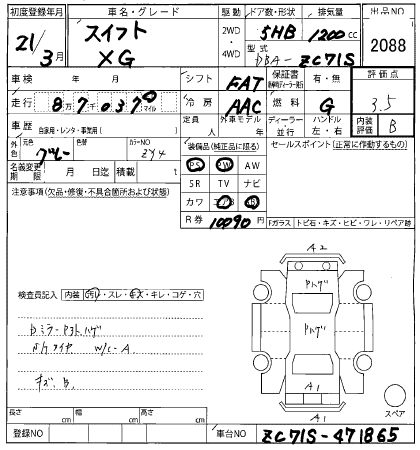 初度登録年月 車名・グレード 駆動 ドア数・形状 排気量 出品NO
21/3月 スイフト XG 2WD・4WD 5HB 1200cc 2088
型式 DBA- ZC71S
車検 年 月 シフト FAT 保証書 有・無 評価点
走行 8万7037 マイル 冷房 AAC 燃料 G 3.5
車歴 自家用・レンタ・事業用( ) 定員 人 外車モデル 年 ディーラー 並行 ハンドル 左・右 内装評価 B
外色 元色 グレー 色替 カラーNO ZY4 装備品(純正品に限る) セールスポイント(正常に動作するもの)
名義変更期限 月 日迄 積載 t PS PW AW
注意事項(欠品・修復・不具合箇所および状態) SR TV ナビ
カワ エアB
R券 10090円 Fガラス トビ石・キズ・ヒビ・ワレ・リペア跡
A2
Pハゲ
検査員記入 内装 汚レ・スレ・キズ・キレ・コゲ・穴
Pハゲ
W/C-A
キズ、B
A1
A1
スペア
長さ cm 幅 cm 高さ cm
登録NO 車台NO ZC71S-471865